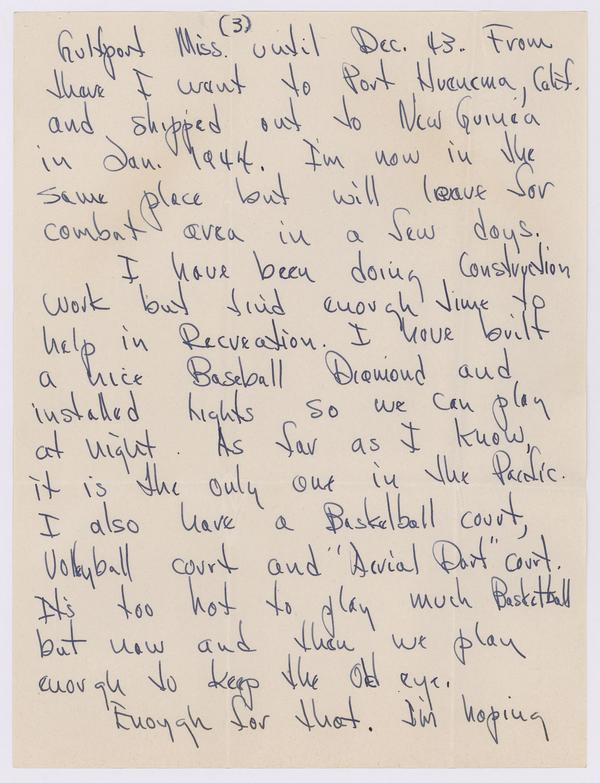 (3)
Gulfport Miss. until Dec. 43. From
there I went to Port Huenema, Calif.
and shipped out to New Guinea
in Jan. 1944. I'm now in the
same place but will leave for
combat area in a few days.
I have been doing Construction
work but find enough time to
help in Recreation. I have built
a nice Baseball Diamond and
installed lights so we can play
at night. As far as I know,
it is the only one in the Pacific.
I also have a Basketball court,
Volleyball court and "Aerial Dart" court.
It's too hot to play much Basketball
but now and then we play
enough to keep the Old eye.
Enough for that. I'm hoping